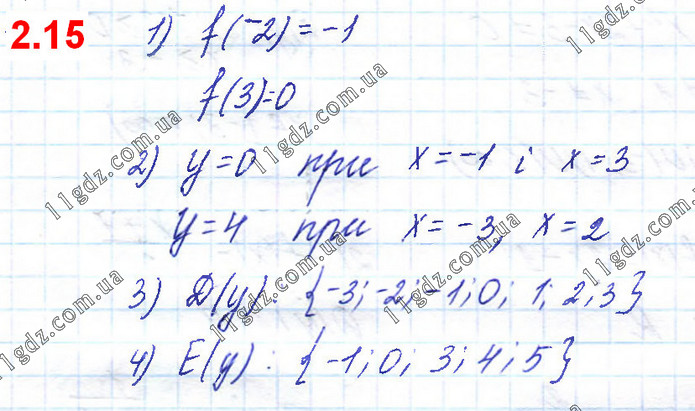 2.15
1) f(-2)=-1
f(3)=0
2) y=0 при x=-1 і x=3
y=4 при x=-3, x=2
3) D(y): {-3; -2; -1; 0; 1; 2; 3}
4) E(y): {-1; 0; 3; 4; 5}
11gdz.com.ua
11gdz.com.ua
11gdz.com.ua
11gdz.com.ua
11gdz.com.ua
11gdz.com.ua
11gdz.com.ua
11gdz.com.ua